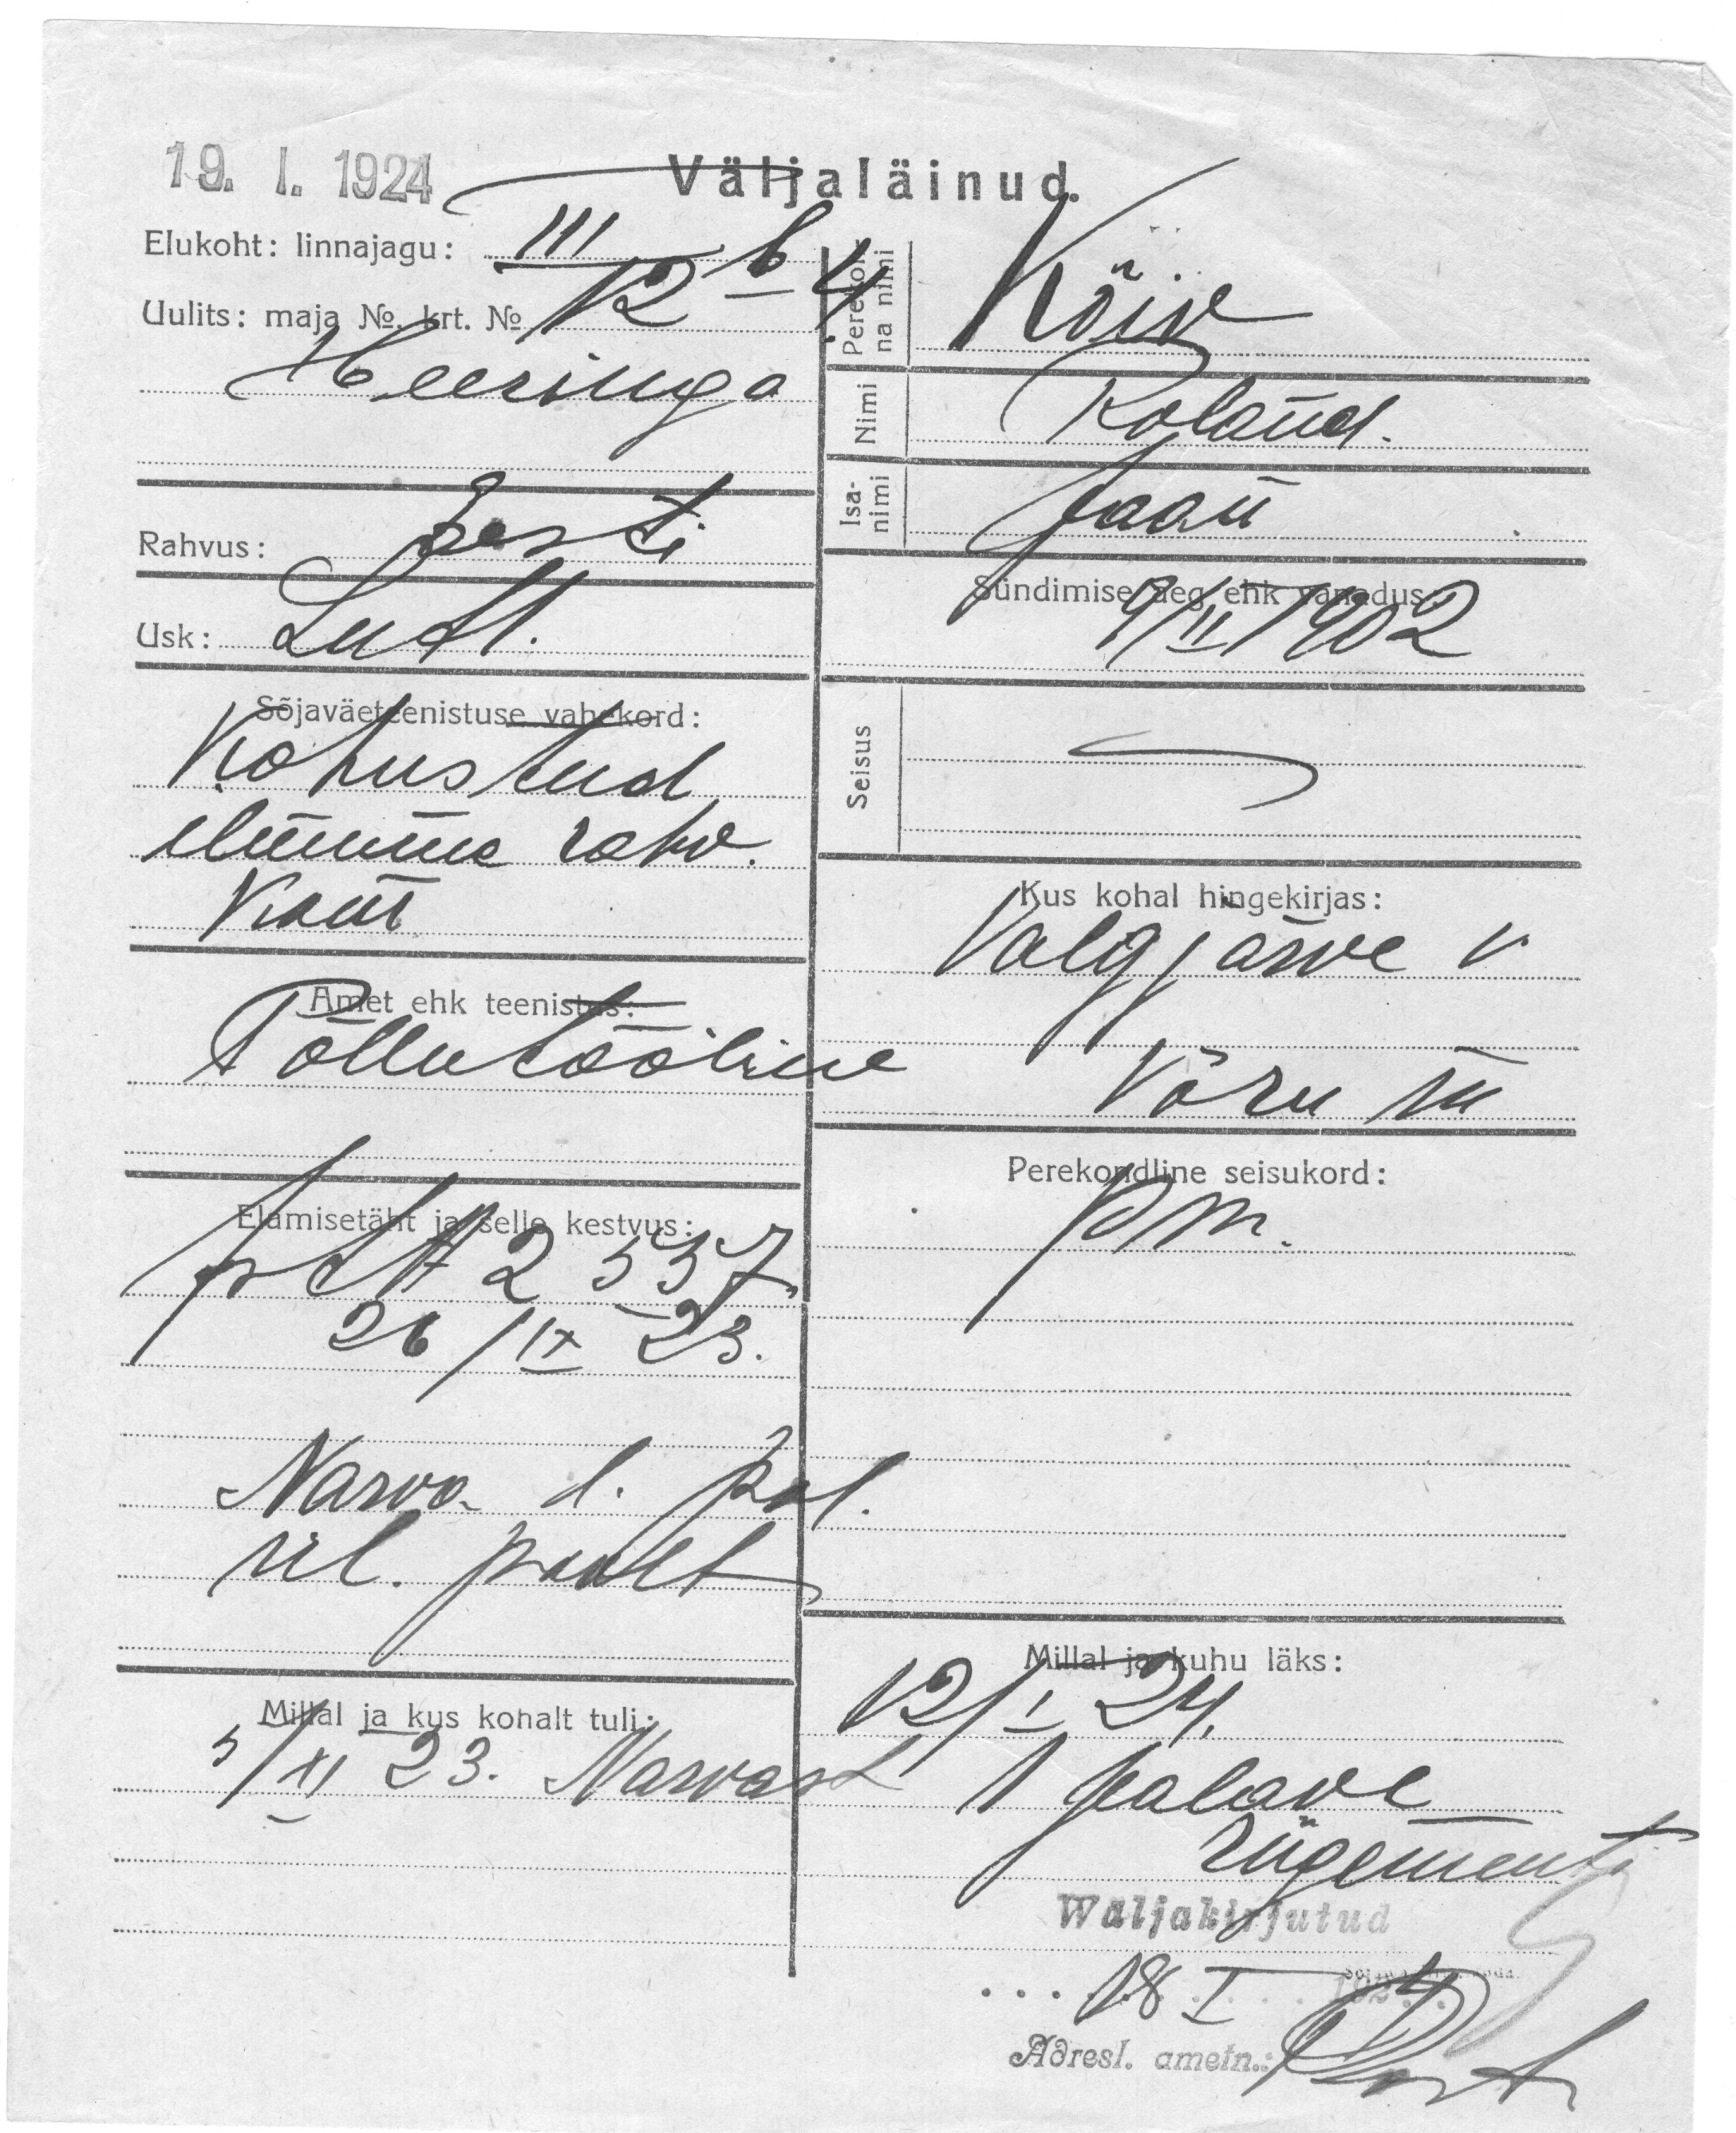 19. I. 1924
Väljaläinud.
Elukoht: linnajagu: III b
Uulits: maja № krt. № 12 – 4
Heeringa
Rahvus: Eesti
Usk: Lutt.
Sõjaväeteenistuse vahekord:
Kohustud
ilmuma rahv.
Kom
Amet ehk teenistus:
Põllutööline
Elamisetäht ja selle kestvus:
2 557
26/IX 23.
Narva l. pol.
ül. poolt
Millal ja kus kohalt tuli:
5/XI 23. Narvast
Perekonna nimi
Kõiv
Nimi
Roland.
Isanimi
Jaan
Sündimise aeg ehk vanadus
9/II 1902
Seisus
Kus kohal hingekirjas:
Valgjärve v
Võru m
Perekondline seisukord:
pm.
Millal ja kuhu läks:
12/I 24.
1 jalav
rügementi
Wäljakirjutud
18 I 1924
Adresl. ametn.: